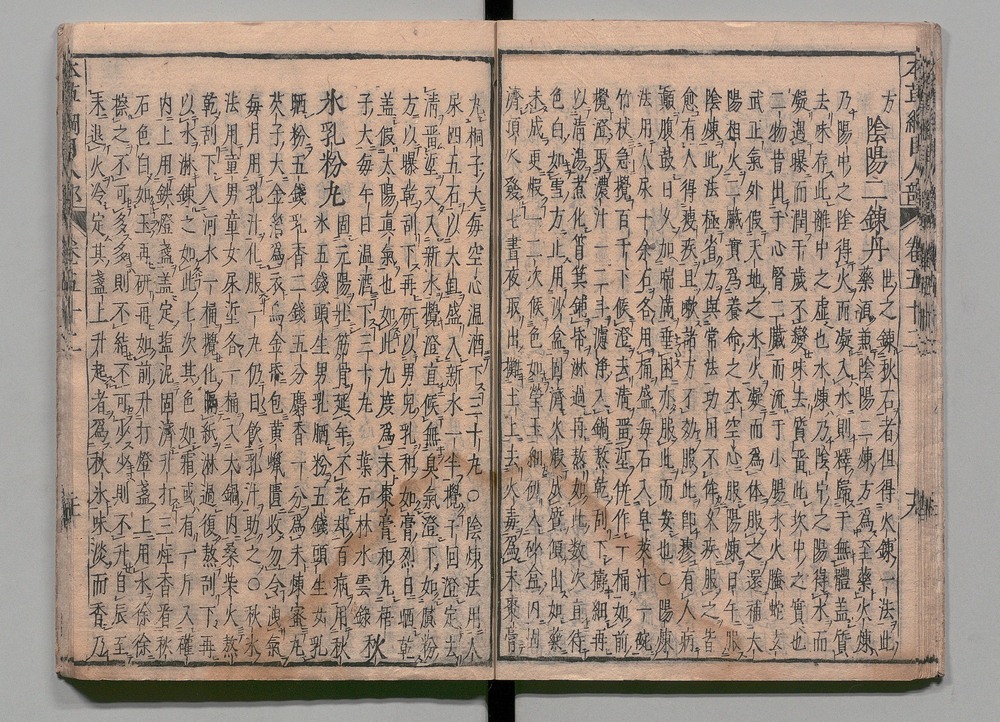 本草綱目人部　卷五十二
方　陰陽二鍊丹　世之鍊秋石者但得火鍊一法此
藥須兼陰陽二煉方爲至藥火煉
乃陽中之陰得火而凝入水則釋歸于無體蓋質
去味存此離中之虛也水煉乃陰中之陽得水而
凝遇曝而潤千歲不變味去質畱此坎中之實也
二物皆出于心腎二臟而流于小腸水火螣蛇玄
武正氣外假天地之水火凝而爲體服之還補太
陽相火二臟實爲養命之本空心服陽煉日午服
陰煉此法極省力與常法功用不侔久疾服之皆
愈有人得瘦疾且嗽諸方不效服此即瘳有人病
顛腹鼓日久加喘滿垂困亦服此而安也○陽煉
法用人尿十余石各用桶盛每石入皁莢汁一碗
竹杖急攪百千下候澄去淸畱垽併作一桶如前
攪澄取濃汁一二斗濾淨入鍋熬乾刮下擣細再
以清湯煮化筲箕鋪帋淋過再熬如此數次直待
色白如雪方止用沙盒固濟火煅成質傾出如藥
未成更煅一二次候色如瑩玉細研入砂盒内固
濟頂火養七晝夜取出攤土上去火毒爲末棗膏
丸梧子大每空心温酒下三十丸○陰煉法用人
尿四五石以大缸盛入新水一半攪千回澄定去
清畱垽又入新水攪澄直候無臭氣澄下如膩粉
方以曝乾刮下再研以男兒乳和如膏烈日晒乾
蓋假太陽真氣也如此九度爲末棗膏和丸梧
子大每午日温酒下三十丸　葉石林水雲錄　秋
氷乳粉丸　固元陽壯筋骨延年不老却百病用秋
氷五錢頭生男乳晒粉五錢頭生女乳
晒粉五錢乳香二錢五分麝香一分爲末煉蜜丸
芡子大金箔爲衣烏金帋包黄蠟匱收勿令洩氣
每月用乳汁化服一丸仍日飲乳汁助之○秋氷
法用童男童女尿垽各一桶入大鍋内桑柴火熬
乾刮下入河水一桶攪化隔紙淋過復熬刮下再
以水淋鍊之如此七次其色如霜或有一斤入罐
内上用鐵燈盞蓋定塩泥固濟升打三炷香看秋
石色白如玉再研再如前升打燈盞上用水徐徐
擦之不可多多則不結不可少少則不升自辰至
未退火冷定其盞上升起者爲秋氷味淡而香乃
本草綱目人部　卷五十二